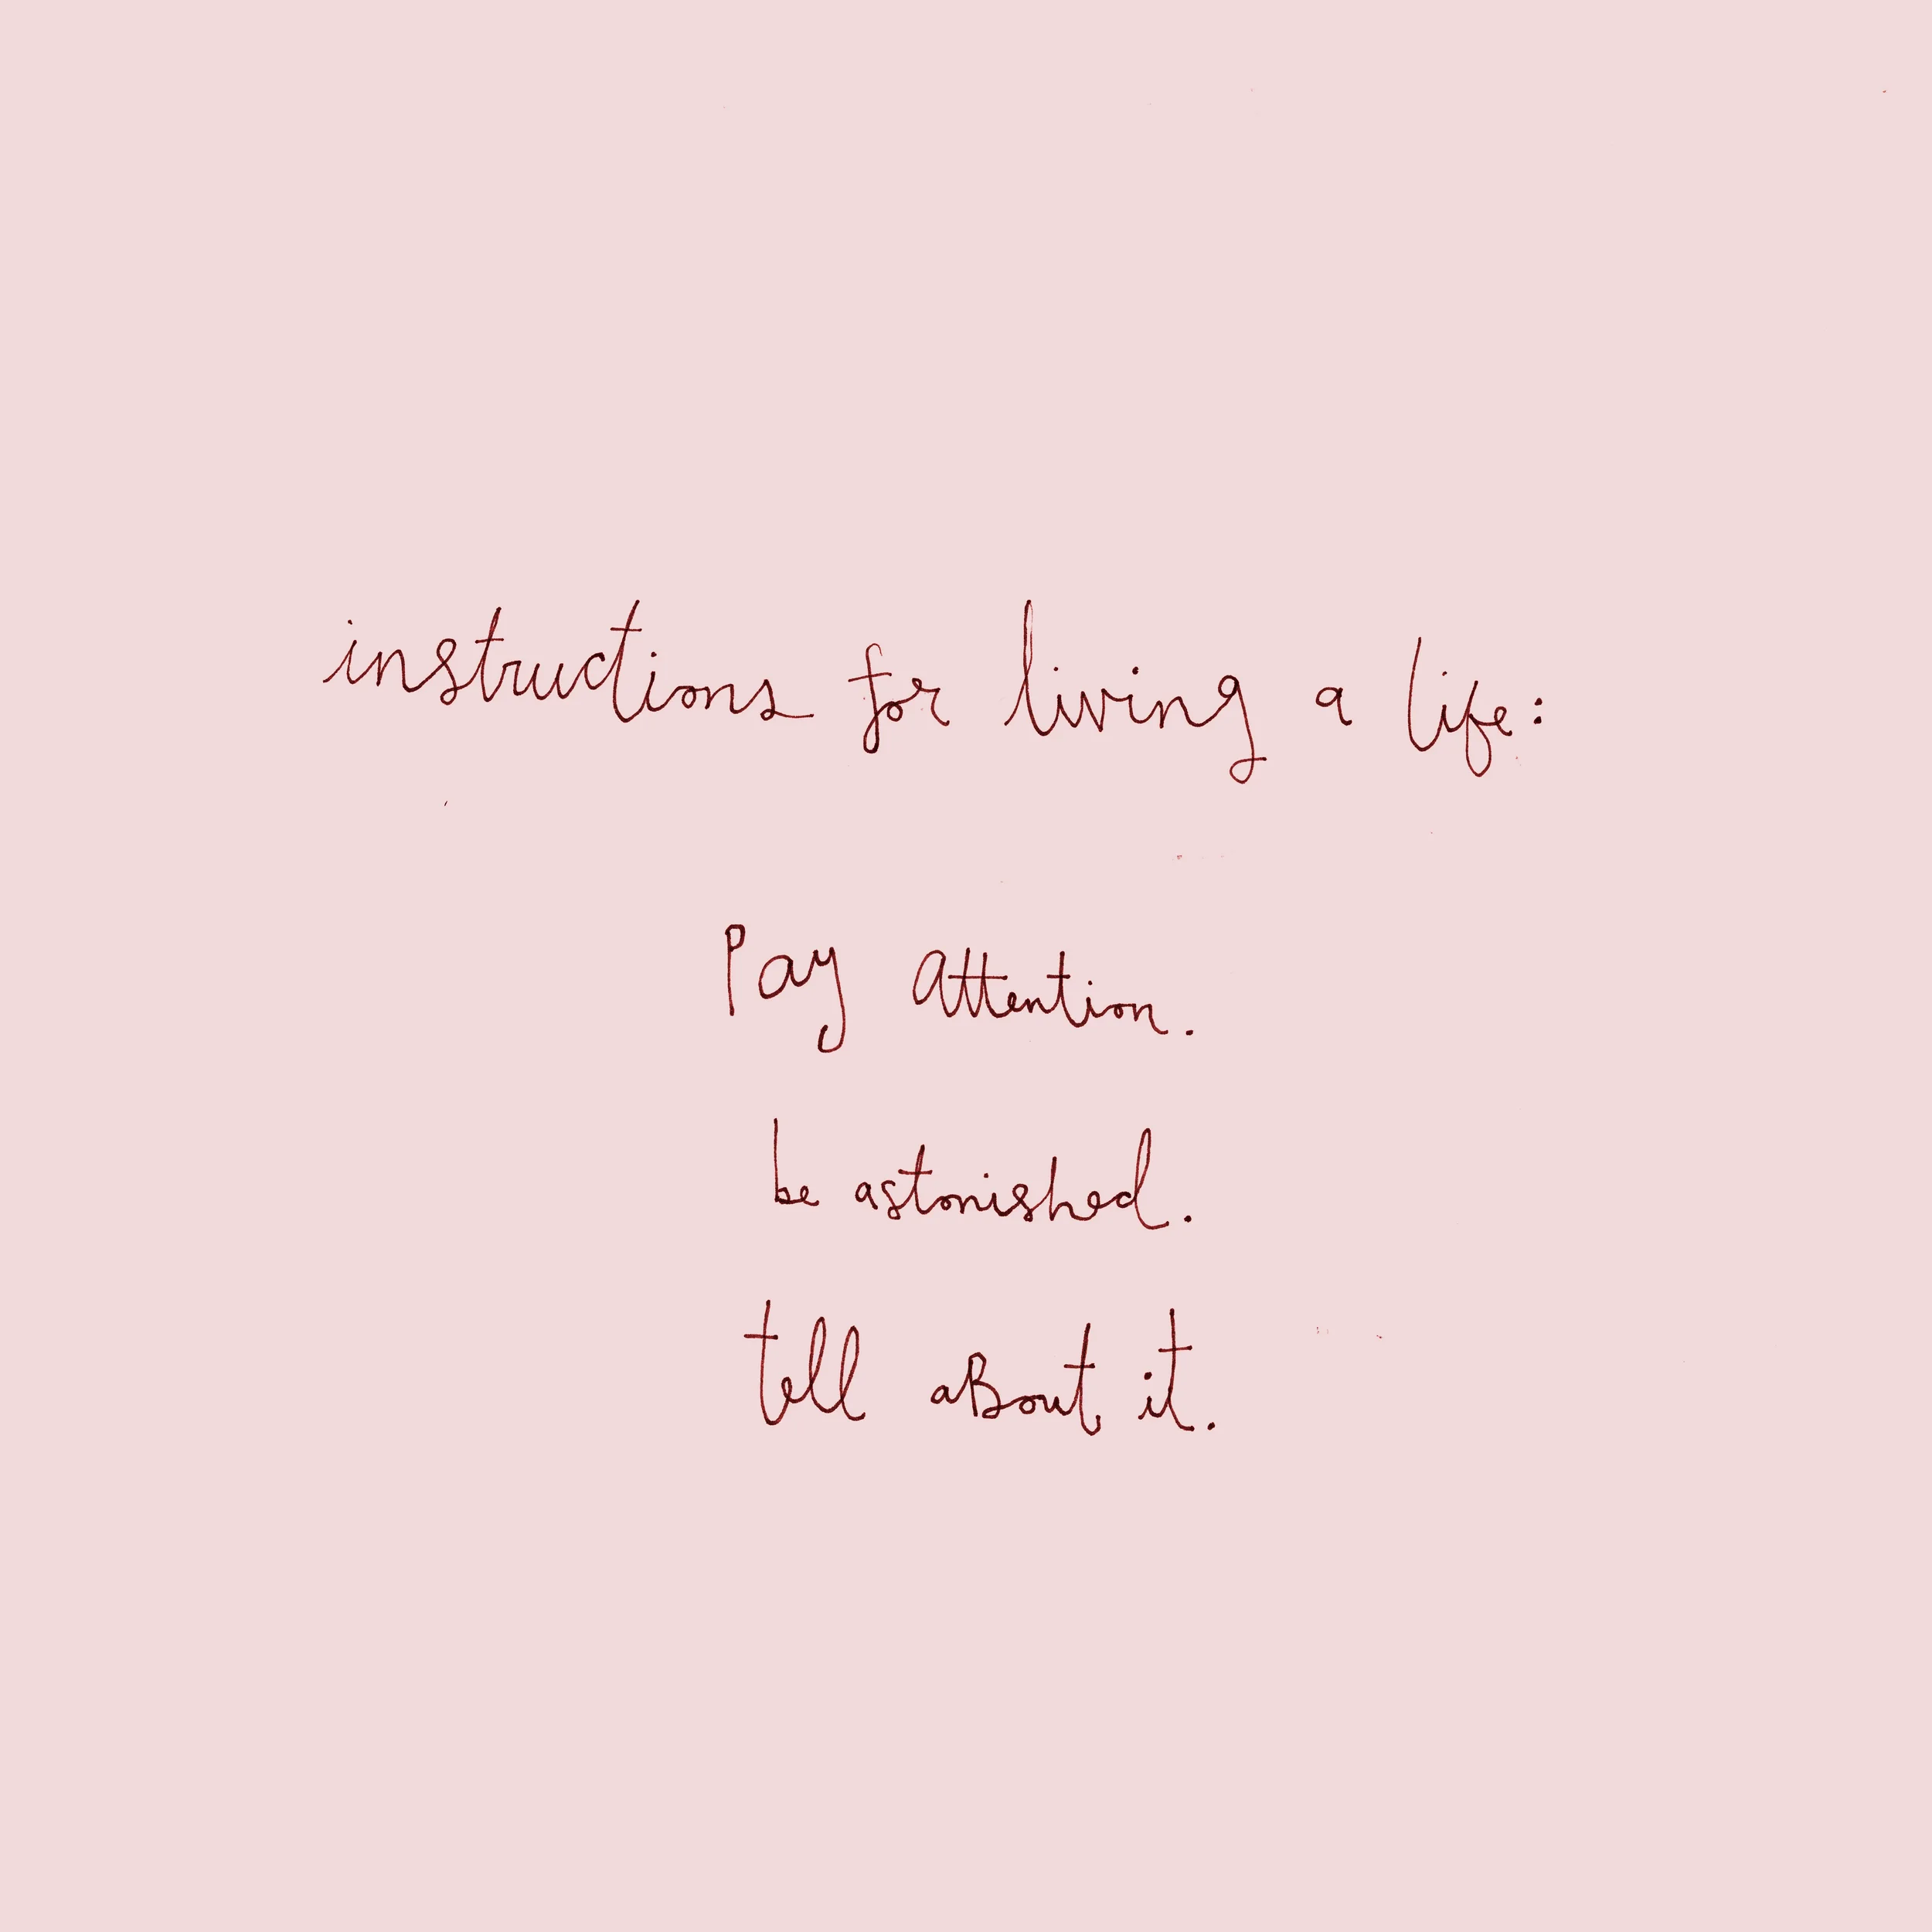 instructions for living a life:
Pay attention.
be astonished.
tell aBout it.